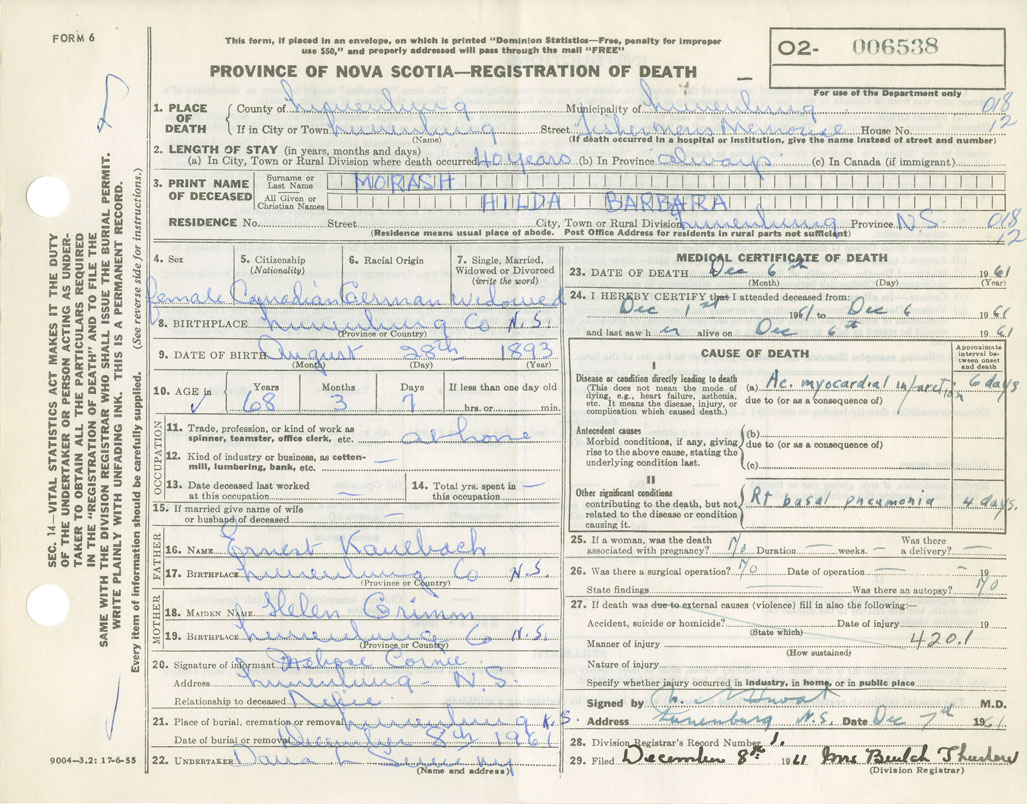 FORM 6
This form, if placed in an envelope, on which is printed "Dominion Statistics—Free, penalty for improper
use $50," and properly addressed will pass through the mail "FREE"
O2- 006538
PROVINCE OF NOVA SCOTIA—REGISTRATION OF DEATH
For use of the Department only
1. PLACE OF DEATH
County of Lunenburg Municipality of Lunenburg 018
If in City or Town Lunenburg Street Fishermens Memorial House No. 12
(Name) (If death occurred in a hospital or institution, give the name instead of street and number)
2. LENGTH OF STAY (in years, months and days)
(a) In City, Town or Rural Division where death occurred 40 years (b) In Province always (c) In Canada (if immigrant)
3. PRINT NAME OF DECEASED
Surname or Last Name MORASH
All Given or Christian Names HILDA BARBARA
RESIDENCE No. Street City, Town or Rural Division Lunenburg Province N.S. 018
(Residence means usual place of abode. Post Office Address for residents in rural parts not sufficient) 12
4. Sex 5. Citizenship (Nationality) 6. Racial Origin 7. Single, Married, Widowed or Divorced (write the word)
female Canadian German widowed
8. BIRTHPLACE Lunenburg Co N.S.
(Province or Country)
9. DATE OF BIRTH August 28th 1893
(Month) (Day) (Year)
10. AGE in Years Months Days If less than one day old
68 3 7 hrs. or min.
OCCUPATION
11. Trade, profession, or kind of work as spinner, teamster, office clerk, etc. at home
12. Kind of industry or business, as cotton-
mill, lumbering, bank, etc. —
13. Date deceased last worked at this occupation — 14. Total yrs. spent in this occupation —
15. If married give name of wife
or husband of deceased —
FATHER
16. NAME Ernest Kaulbach
17. BIRTHPLACE Lunenburg Co N.S.
(Province or Country)
MOTHER
18. MAIDEN NAME Helen Grimm
19. BIRTHPLACE Lunenburg Co N.S.
(Province or Country)
20. Signature of informant
Address Lunenburg N.S.
Relationship to deceased
21. Place of burial, cremation or removal Lunenburg N.S.
Date of burial or removal December 8th 1961
22. UNDERTAKER
(Name and address)
MEDICAL CERTIFICATE OF DEATH
23. DATE OF DEATH Dec 6th 1961
(Month) (Day) (Year)
24. I HEREBY CERTIFY that I attended deceased from:
Dec 1st 1961 to Dec 6 1961
and last saw her alive on Dec 6th 1961
CAUSE OF DEATH
Approximate interval between onset and death
I
Disease or condition directly leading to death
(This does not mean the mode of dying, e.g., heart failure, asthenia, etc. It means the disease, injury, or complication which caused death.)
(a) Ac. myocardial infarction 6 days
due to (or as a consequence of)
Antecedent causes
Morbid conditions, if any, giving rise to the above cause, stating the underlying condition last.
(b)
due to (or as a consequence of)
(c)
II
Other significant conditions
contributing to the death, but not related to the disease or condition causing it.
Rt basal pneumonia 4 days.
25. If a woman, was the death associated with pregnancy? No Duration — weeks. Was there a delivery? —
26. Was there a surgical operation? No Date of operation — 19
State findings Was there an autopsy? No
27. If death was due to external causes (violence) fill in also the following:—
Accident, suicide or homicide? Date of injury 19
(State which)
Manner of injury 420.1
(How sustained)
Nature of injury
Specify whether injury occurred in industry, in home, or in public place
Signed by M.D.
Address Lunenburg N.S. Date Dec 7th 1961
28. Division Registrar's Record Number 1.
29. Filed December 8th 1961 Mrs Beulah
(Division Registrar)
SEC. 14—VITAL STATISTICS ACT MAKES IT THE DUTY
OF THE UNDERTAKER OR PERSON ACTING AS UNDER-
TAKER TO OBTAIN ALL THE PARTICULARS REQUIRED
IN THE "REGISTRATION OF DEATH" AND TO FILE THE
SAME WITH THE DIVISION REGISTRAR WHO SHALL ISSUE THE BURIAL PERMIT.
WRITE PLAINLY WITH UNFADING INK. THIS IS A PERMANENT RECORD.
Every item of information should be carefully supplied. (See reverse side for instructions.)
9004—3.2: 17-6-55